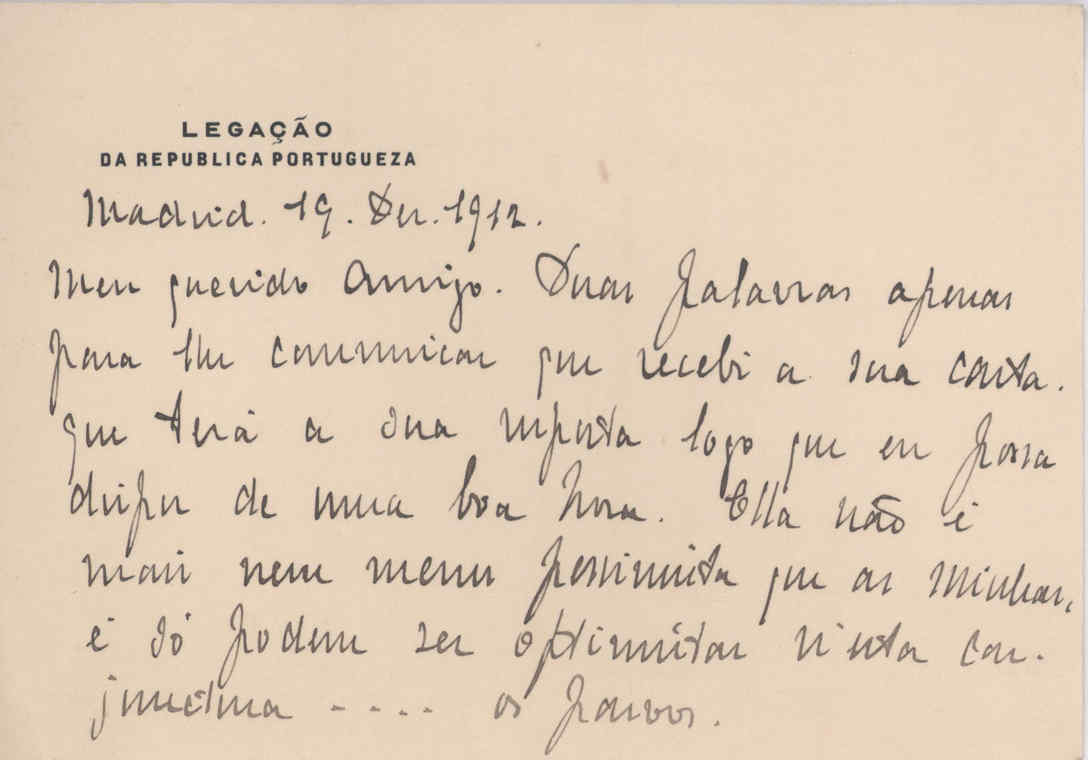 LEGAÇÃO
DA REPUBLICA PORTUGUEZA
Madrid. 19. Dez. 1912.
Meu querido Amigo. Duas palavras apenas
para lhe communicar que recebi a sua carta.
que terá a sua resposta logo que eu possa
dispor de uma boa hora. Ella não é
mais nem menos pessimista que as minhas,
e só podem ser optimistas n'esta con-
junctura .... os parvos.